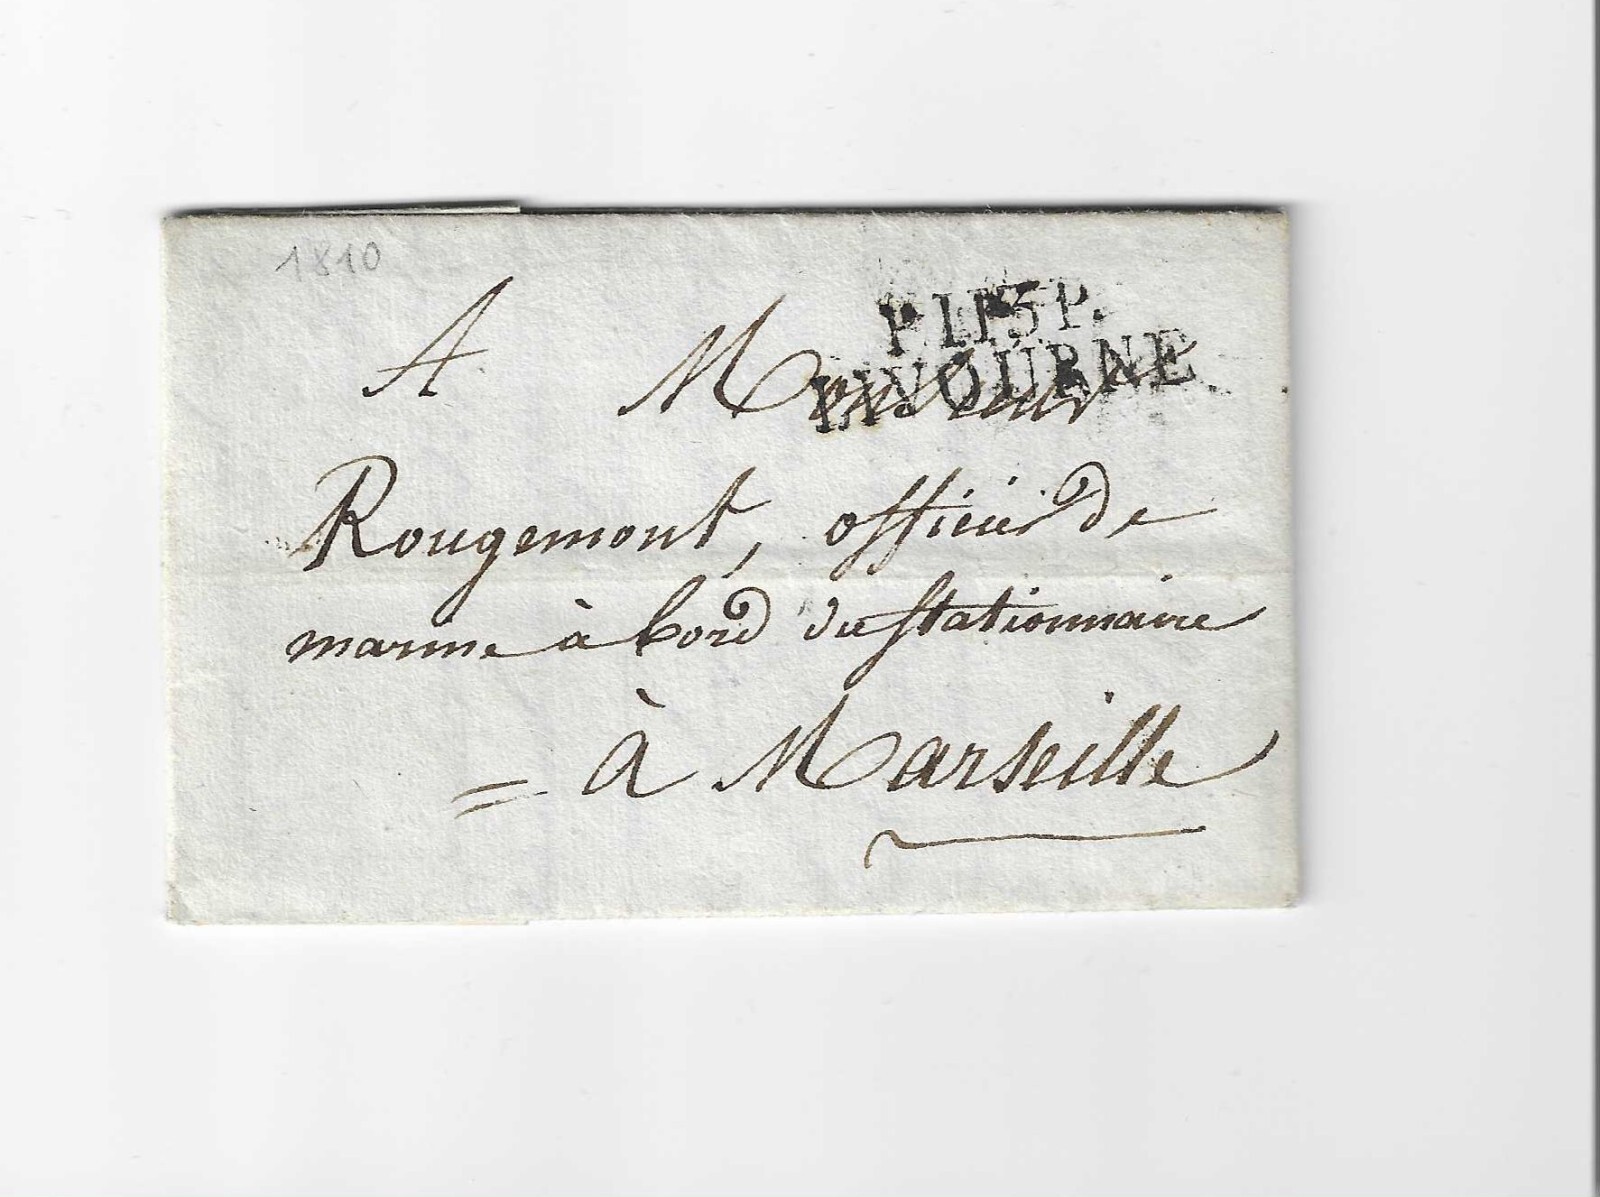 1810
P.113.P.
LIVOURNE
A Monsieur
Rougemont, officier de
marine à bord du stationnaire
= à Marseille